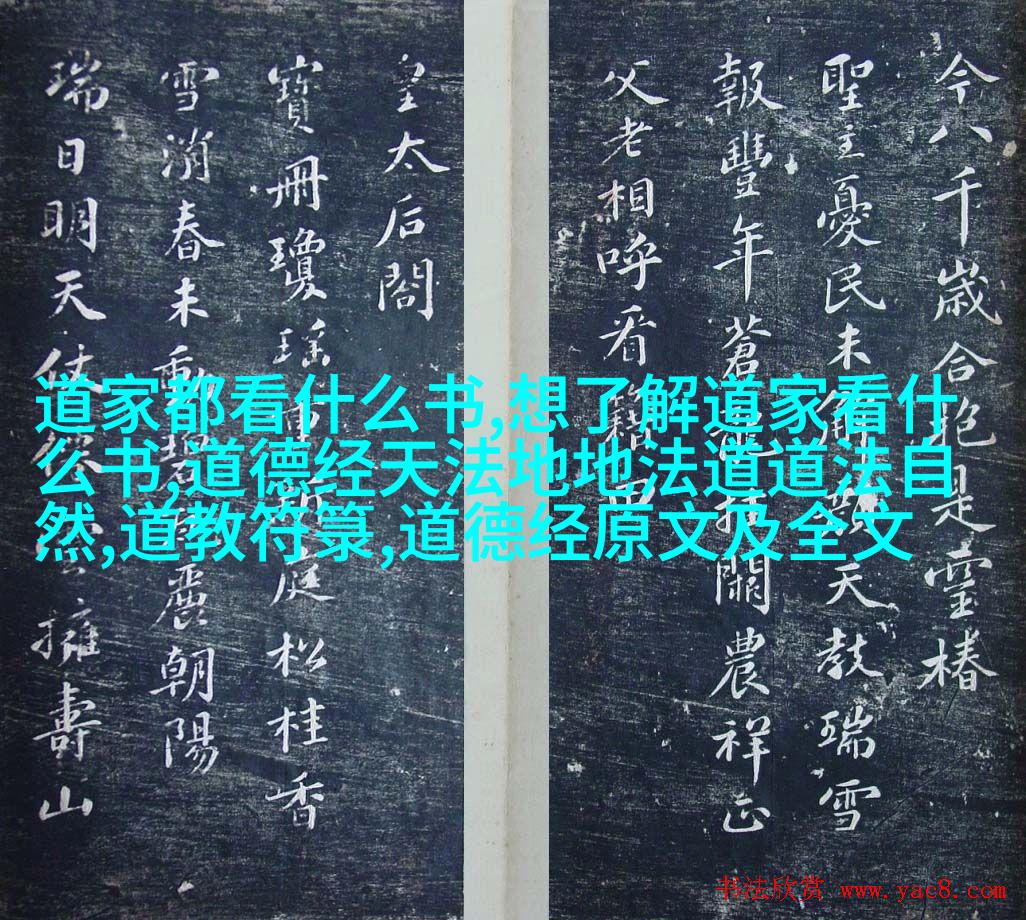 今八千歲合抱是靈椿
聖主憂民未解天教瑞雪
報豐年蒼掛闕農祥正
父老相呼看籍田
皇太后閤
寶冊瓊瑤庭松桂香
雪消春未動麗朝陽
瑞日明天仗擁壽山
道家都看什么书,想了解道家看什
么书,道德经天法地地法道道法自
然,道教符箓,道德经原文及全文
书法欣赏 www.yac8.com